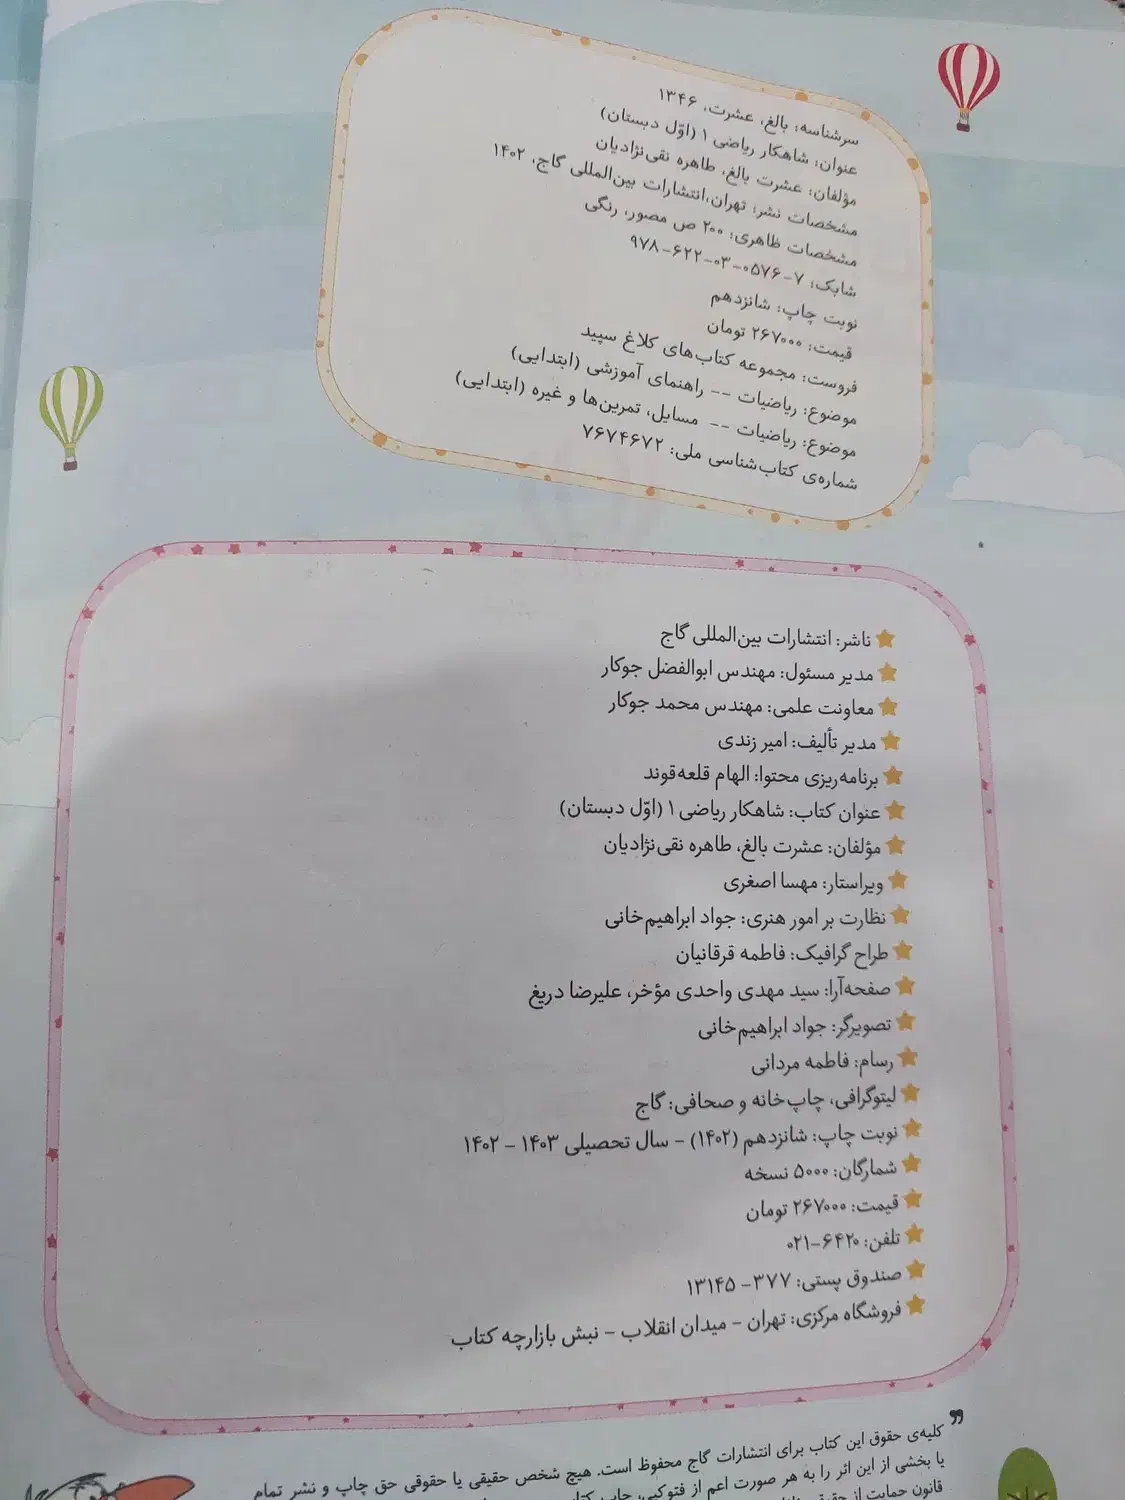 سرشناسه: بالغ، عشرت، ۱۳۴۶
عنوان: شاهکار ریاضی ۱ (اوّل دبستان)
مؤلفان: عشرت بالغ، طاهره نقی‌نژادیان
مشخصات نشر: تهران،انتشارات بین‌المللی گاج، ۱۴۰۲
مشخصات ظاهری: ۲۰۰ ص مصور، رنگی
شابک: ۷-۰۵۷۶-۰۳-۶۲۲-۹۷۸
نوبت چاپ: شانزدهم
قیمت: ۲۶۷۰۰۰ تومان
فروست: مجموعه کتاب‌های کلاغ سپید
موضوع: ریاضیات -- راهنمای آموزشی (ابتدایی)
موضوع: ریاضیات -- مسایل، تمرین‌ها و غیره (ابتدایی)
شماره‌ی کتاب‌شناسی ملی: ۷۶۷۴۶۷۲
ناشر: انتشارات بین‌المللی گاج
مدیر مسئول: مهندس ابوالفضل جوکار
معاونت علمی: مهندس محمد جوکار
مدیر تألیف: امیر زندی
برنامه‌ریزی محتوا: الهام قلعه‌قوند
عنوان کتاب: شاهکار ریاضی ۱ (اوّل دبستان)
مؤلفان: عشرت بالغ، طاهره نقی‌نژادیان
ویراستار: مهسا اصغری
نظارت بر امور هنری: جواد ابراهیم‌خانی
طراح گرافیک: فاطمه قرقانیان
صفحه‌آرا: سید مهدی واحدی مؤخر، علیرضا دریغ
تصویرگر: جواد ابراهیم‌خانی
رسام: فاطمه مردانی
لیتوگرافی، چاپ‌خانه و صحافی: گاج
نوبت چاپ: شانزدهم (۱۴۰۲) - سال تحصیلی ۱۴۰۳ - ۱۴۰۲
شمارگان: ۵۰۰۰ نسخه
قیمت: ۲۶۷۰۰۰ تومان
تلفن: ۶۴۲۰-۰۲۱
صندوق پستی: ۳۷۷- ۱۳۱۴۵
فروشگاه مرکزی: تهران - میدان انقلاب - نبش بازارچه کتاب
کلیه‌ی حقوق این کتاب برای انتشارات گاج محفوظ است. هیچ شخص حقیقی یا حقوقی حق چاپ و نشر تمام
یا بخشی از این اثر را به هر صورت اعم از فتوکپی، چاپ
قانون حمایت از